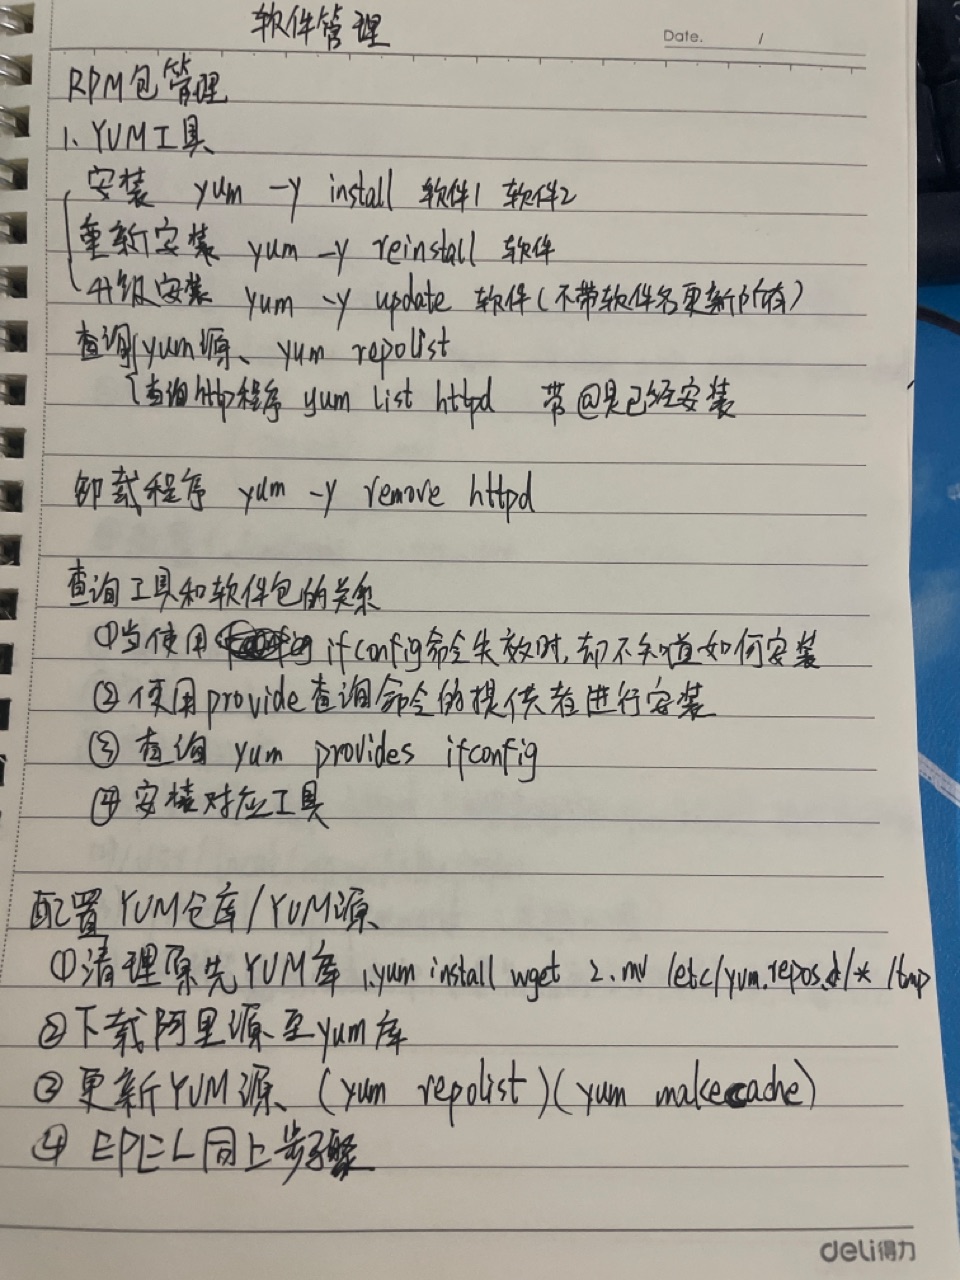 软件管理
Date. /
RPM包管理
1、YUM工具
安装 yum -y install 软件1 软件2
重新安装 yum -y reinstall 软件
升级安装 yum -y update 软件(不带软件名更新所有)
查询 yum源、yum repolist
查询http程序 yum list httpd 带@是已经安装
卸载程序 yum -y remove httpd
查询工具和软件包的关系
①当使用 ifconfig命令失效时,却不知道如何安装
②使用provide查询命令的提供者进行安装
③ 查询 yum provides ifconfig
④安装对应工具
配置YUM仓库/YUM源
①清理原先YUM库 1.yum install wget 2.mv /etc/yum.repos.d/* /tmp
②下载阿里源至yum库
③更新YUM源、(yum repolist)(yum makecache)
④ EPEL同上步骤
deli得力